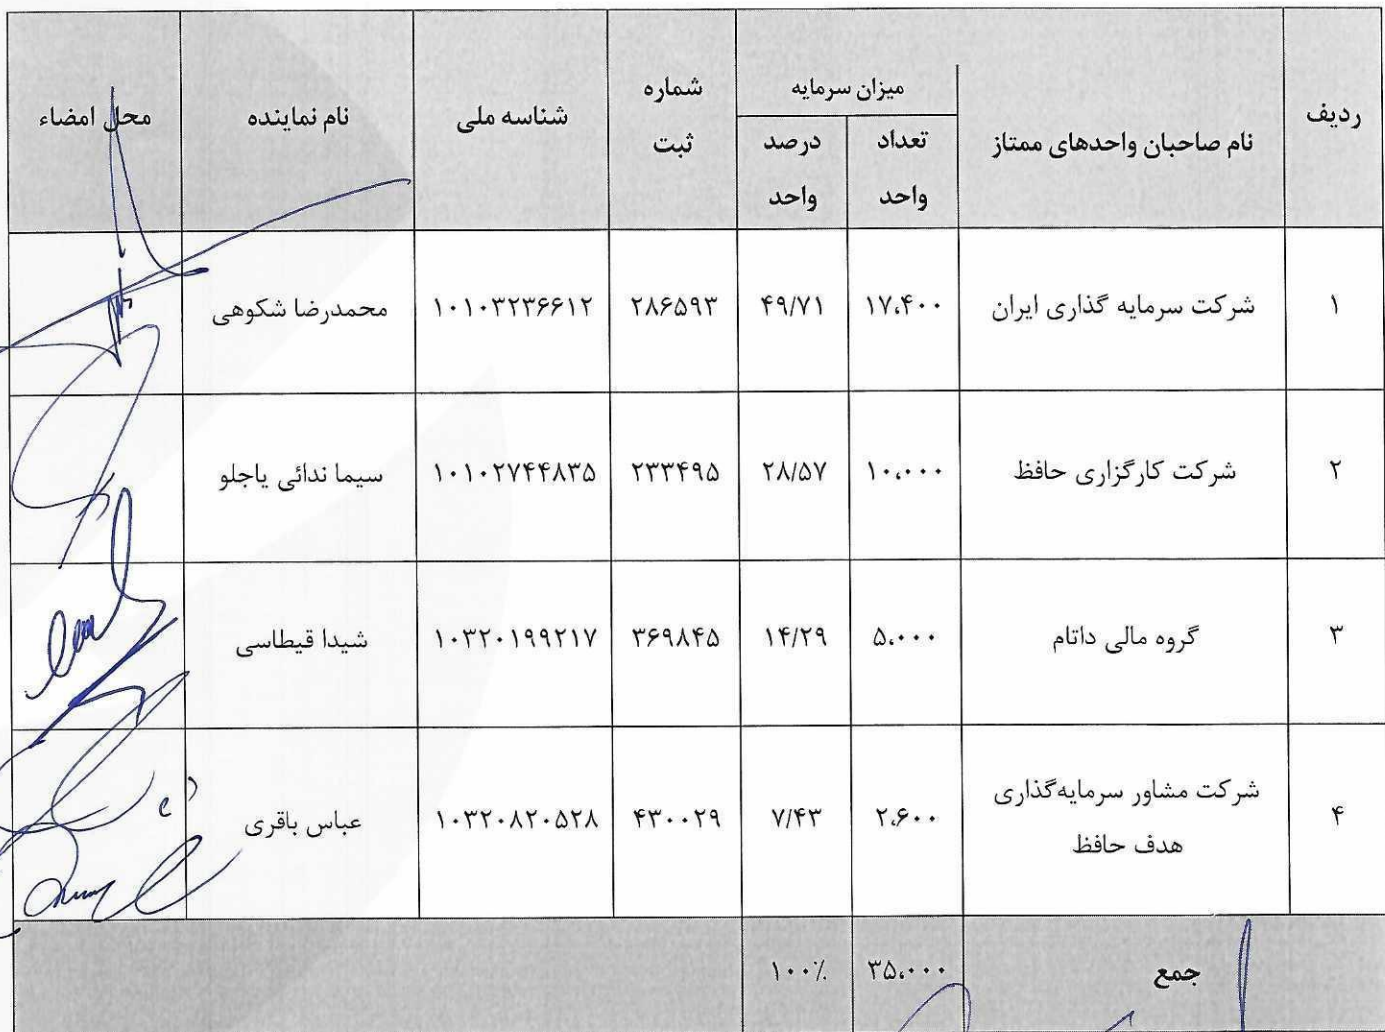 ردیف
نام صاحبان واحدهای ممتاز
میزان سرمایه
تعداد واحد
درصد واحد
شماره ثبت
شناسه ملی
نام نماینده
محل امضاء
۱ شرکت سرمایه گذاری ایران ۱۷،۴۰۰ ۴۹/۷۱ ۲۸۶۵۹۳ ۱۰۱۰۳۲۳۶۶۱۲ محمدرضا شکوهی
۲ شرکت کارگزاری حافظ ۱۰،۰۰۰ ۲۸/۵۷ ۲۳۳۴۹۵ ۱۰۱۰۲۷۴۴۸۳۵ سیما ندائی یاجلو
۳ گروه مالی داتام ۵،۰۰۰ ۱۴/۲۹ ۳۶۹۸۴۵ ۱۰۳۲۰۱۹۹۲۱۷ شیدا قیطاسی
۴ شرکت مشاور سرمایه‌گذاری
هدف حافظ ۲،۶۰۰ ۷/۴۳ ۴۳۰۰۲۹ ۱۰۳۲۰۸۲۰۵۲۸ عباس باقری
جمع ۳۵،۰۰۰ ۱۰۰٪